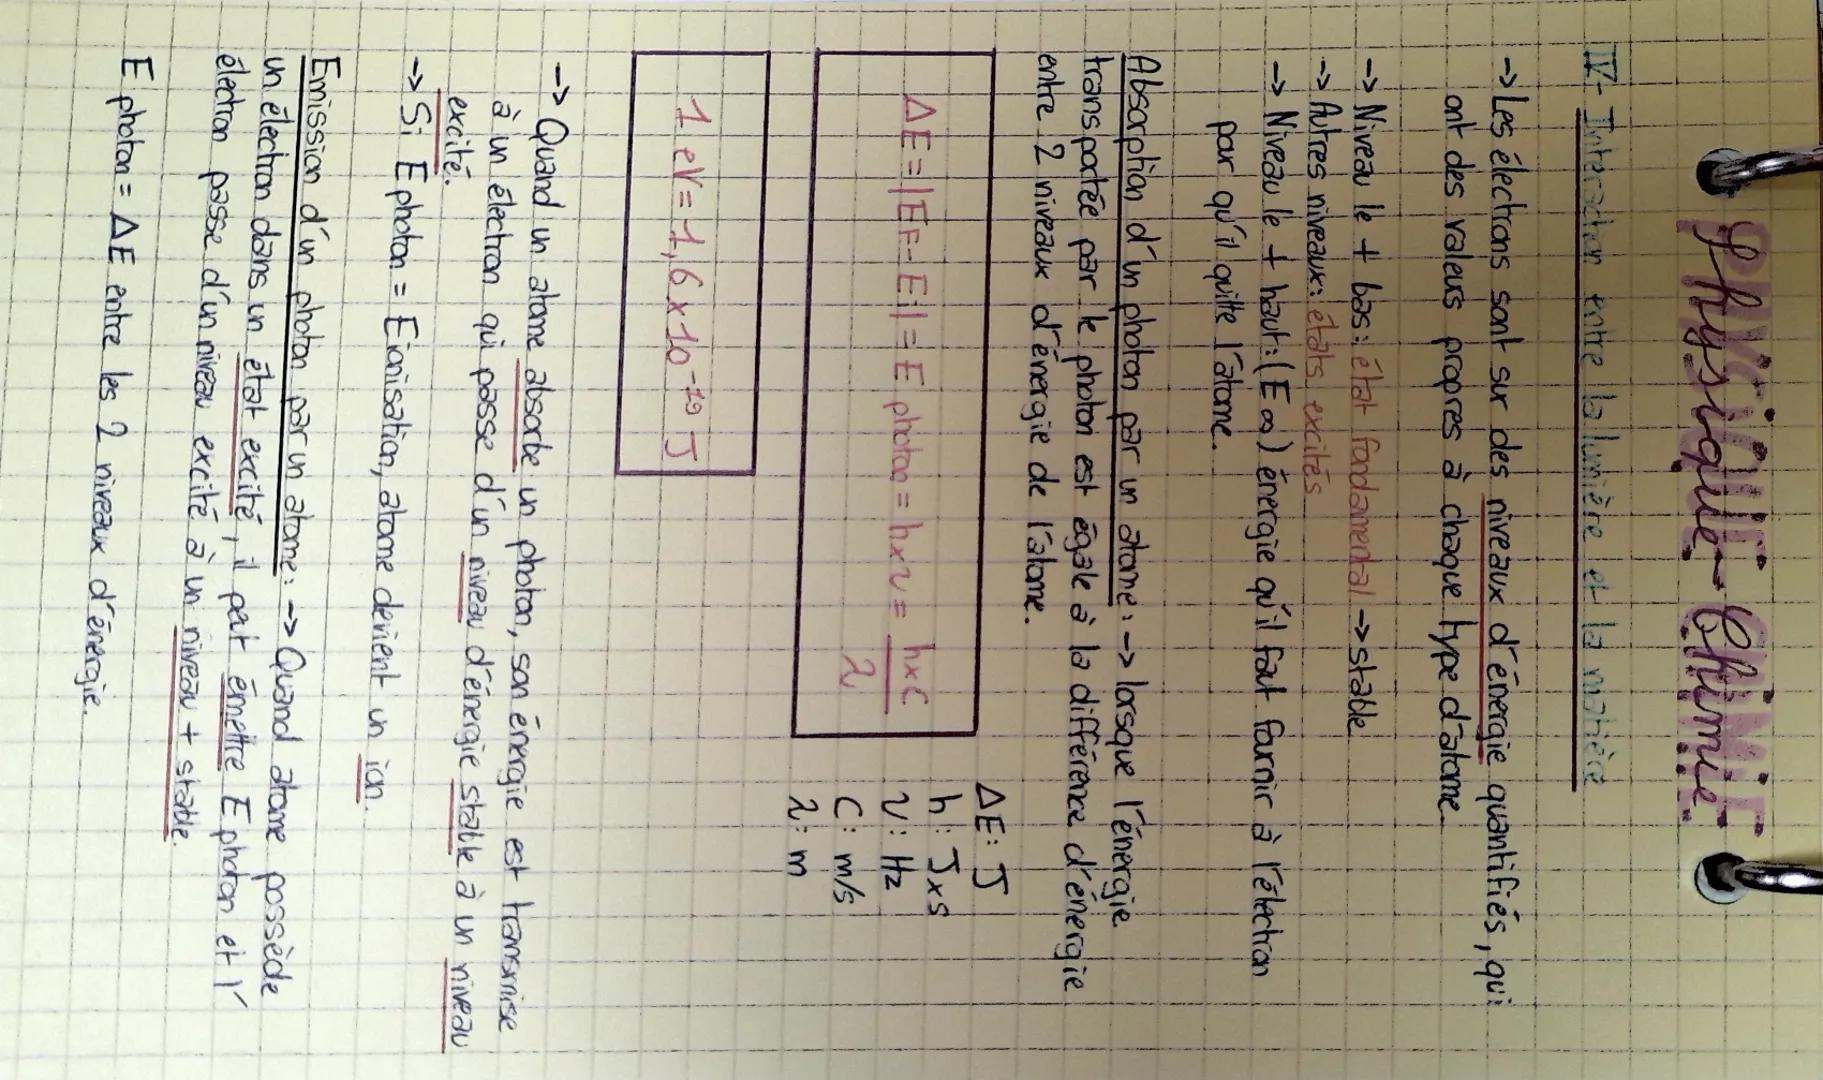 Physique-Chimie
IV- Interaction entre la lumière et la matière
-> Les électrons sont sur des niveaux d'énergie quantifiés, qui
ont des valeurs propres à chaque type d'atome.
-> Niveau le + bas : état fondamental -> stable
-> Autres niveaux : états excités
-> Niveau le + haut : (E∞) énergie qu'il faut fournir à l'électron
par qu'il quitte l'atome.
Absorption d'un photon par un atome : -> lorsque l'énergie
transportée par le photon est égale à la différence d'énergie
entre 2 niveaux d'énergie de l'atome.
ΔE = |EF - Ei| = E photon = h x ν = h x c / λ
ΔE : J
h : J x s
ν : Hz
C : m/s
λ : m
1 eV = 1,6 x 10⁻¹⁹ J
-> Quand un atome absorbe un photon, son énergie est transmise
à un électron qui passe d'un niveau d'énergie stable à un niveau
excité.
-> Si E photon = E ionisation, atome devient un ion.
Emission d'un photon par un atome : -> Quand atome possède
un électron dans un état excité, il peut émettre E photon et l'
électron passe d'un niveau excité à un niveau + stable.
E photon = ΔE entre les 2 niveaux d'énergie.